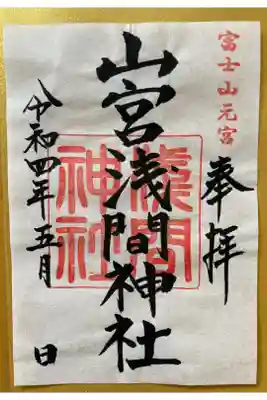 富士山元宮
奉拝
山宮浅間神社
淺間
神社
令和四年五月 日